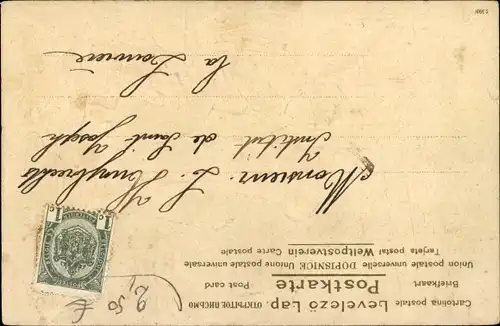 Cartolina postale Levelezö Lap. ОТКРЫТОЕ ПИСЬМО
Briefkaart Postkarte Post card
Union postale universelle DOPISNICE Unione postale universale
Tarjeta postal Weltpostverein Carte postale
Monsieur. L.
Institut de Saint Joseph
La Louvière
1c 1c
2,50 €